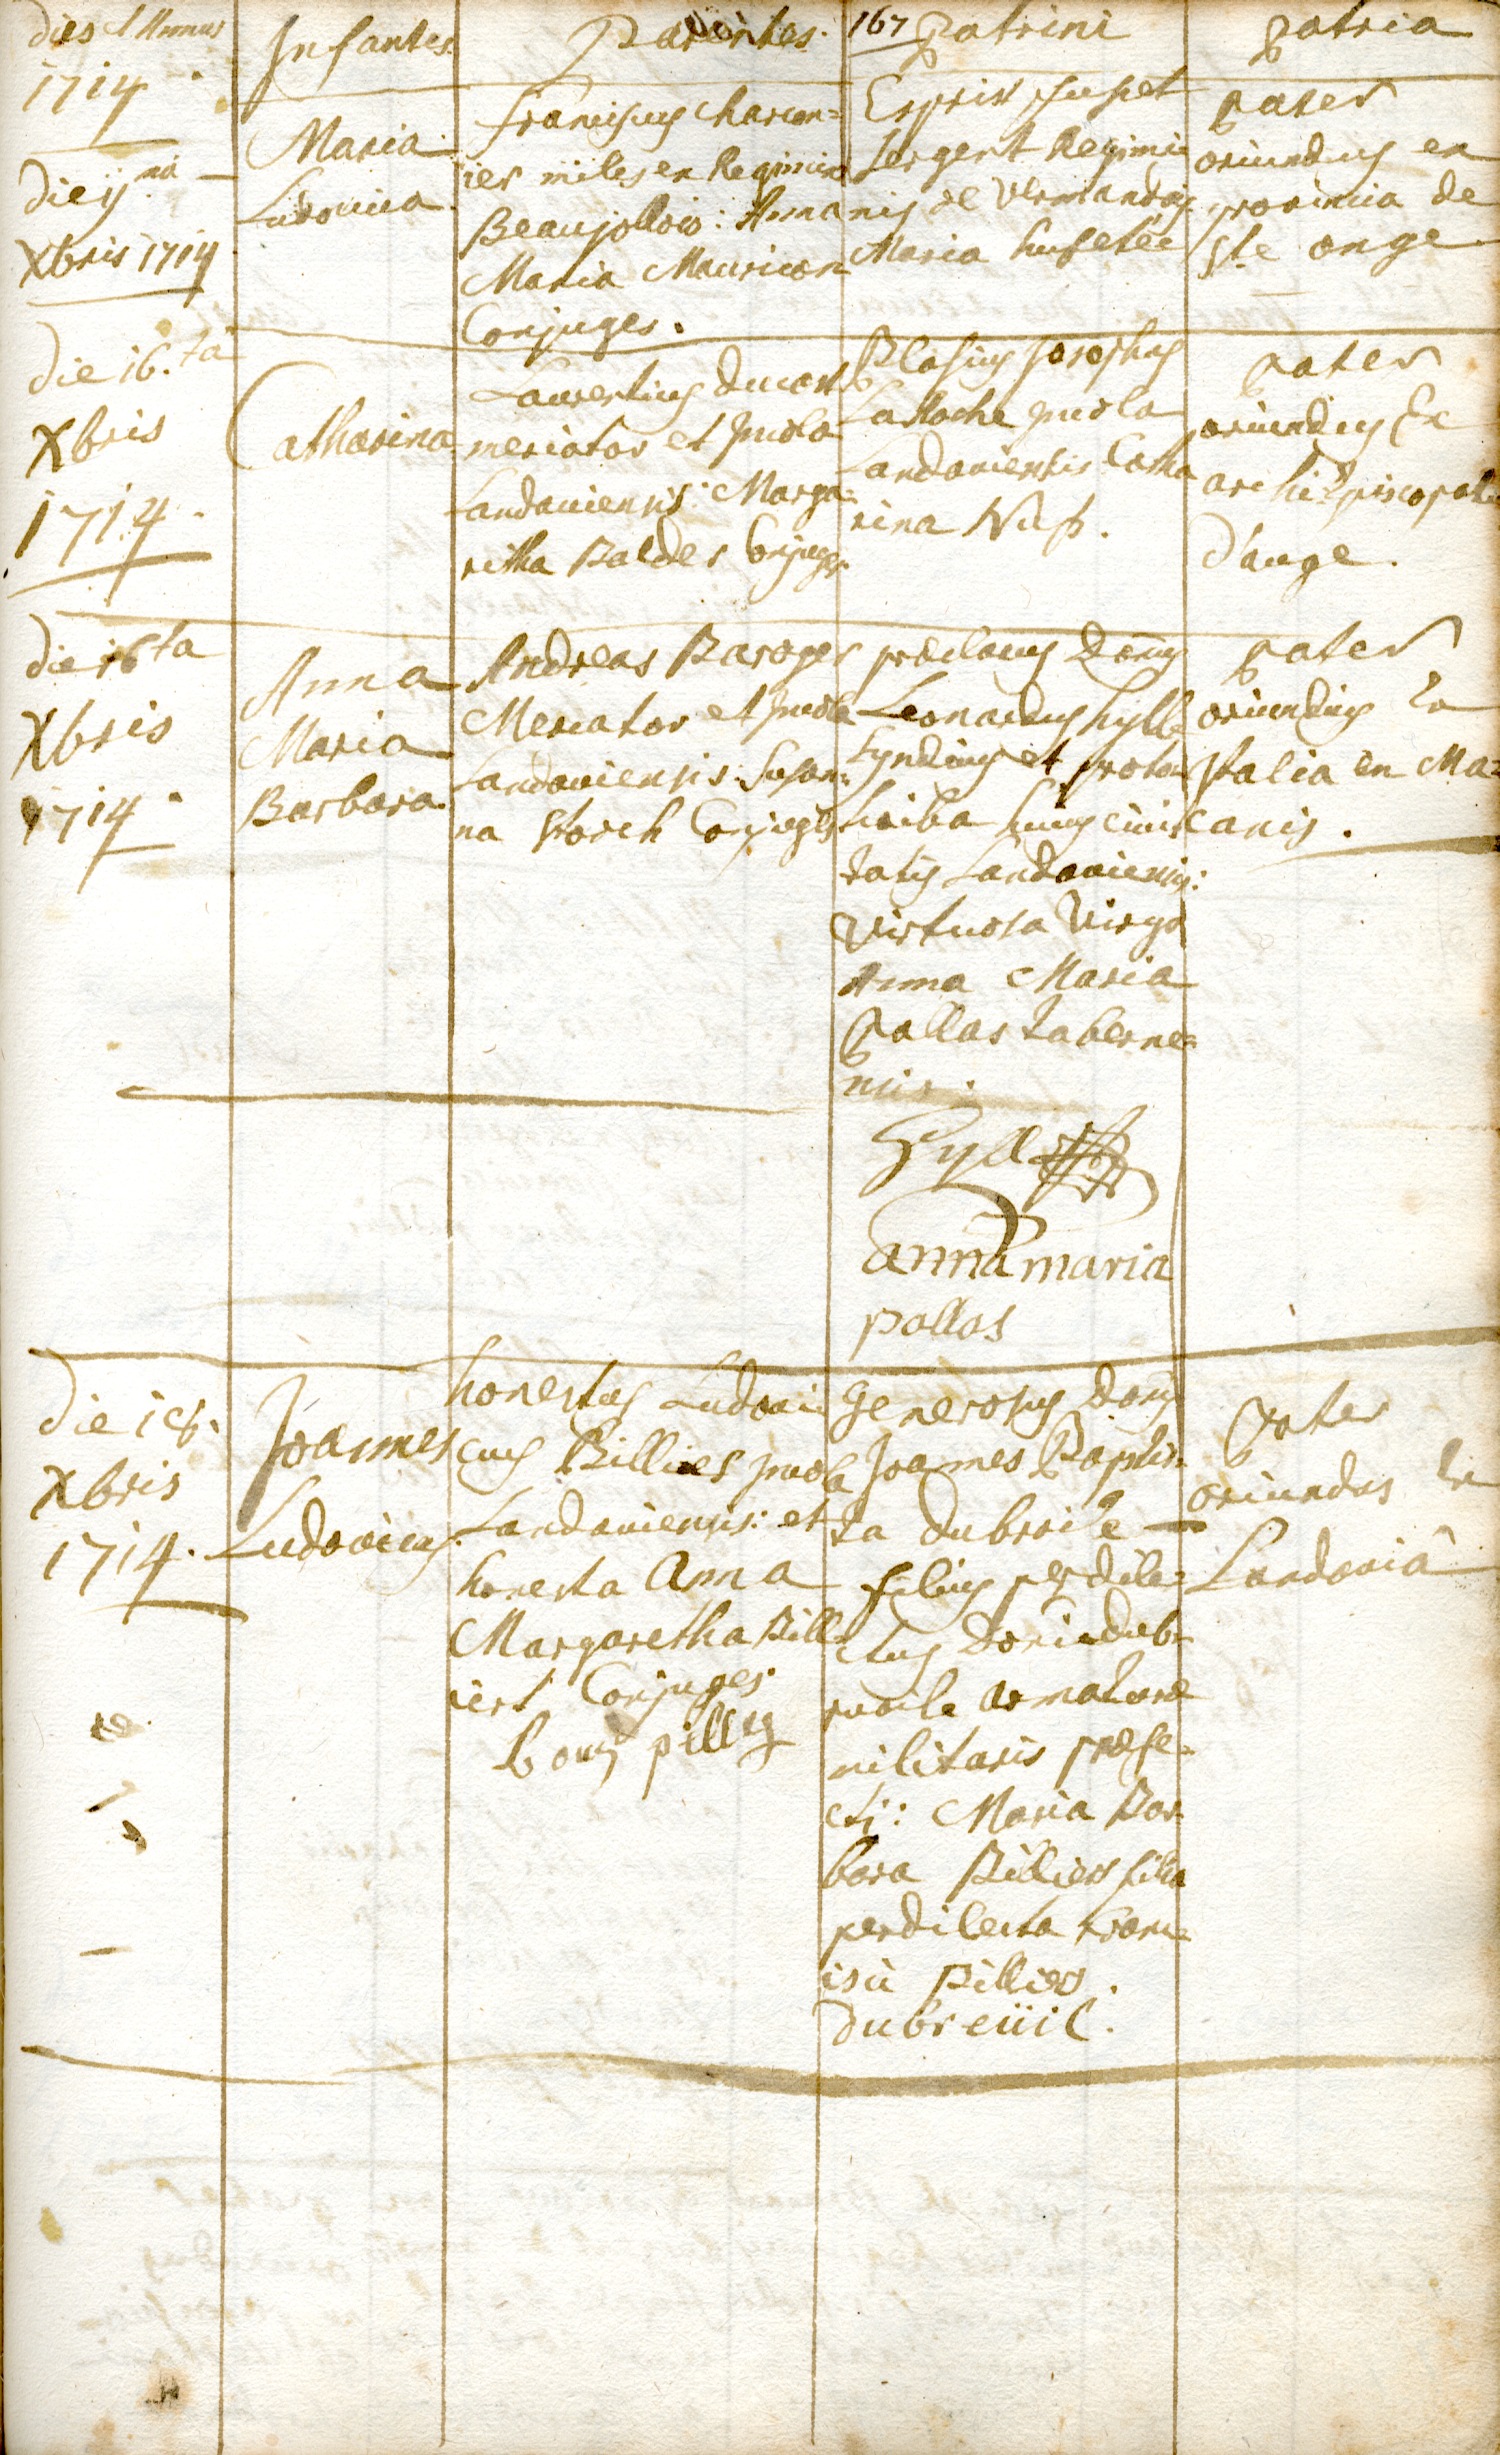 dies et Annus
1714.
Infantes
Parentes.
167 patrini
patria
die ij na
Xbris 1714
Maria
Ludovica.
franciscus charon=
ier miles ex Regimine
Beaujollois: Anna
Maria Mauricon
Conjuges.
Esprit
sergent Regimi
nis de Vermandois
Maria
pater
oriundus ex
provincia de
Ste onge
die 16.ta
Xbris
1714.
Catharina
Laurentius
mercator et Incola
Landaviensis: Marga=
ritha Baldes Conjuges.
Blasius Josephus
Laroche Incola
Landaviensis Catha
rina
pater
oriundus Ex
archiepiscopatu
d'auge.
die 16ta
Xbris
1714.
Anna
Maria
Barbara.
Andreas Baroger
Mercator et Incola
Landaviensis: Susan=
na Storch Conjuges
praeclarus Domus
Leonardus hylle
Syndicus et proto=
scriba huius civi
tatis Landaviensis:
virtuosa Virgo
Anna Maria
Pallas taberne=
nsis.
Hylle
anna maria
pallas
pater
oriundus Ex
Italia en Ma=
canis.
die 18.
Xbris
1714.
Joannes
Ludovicus.
honestus Ludovi
cus Billier Incola
Landaviensis: et
honesta Anna
Margaretha Bill=
iert Conjuges.
Louy pilly
Generosus Domus
Joannes Baptis=
ta dubroile
filius perdile=
ctus Domini dub=
ruoile armaturae
militaris praefe=
cti: Maria Bar
bara Billiers filia
perdilecta Franc=
isci Billier.
dubreüil.
pater
oriundus Ex
Landaviâ